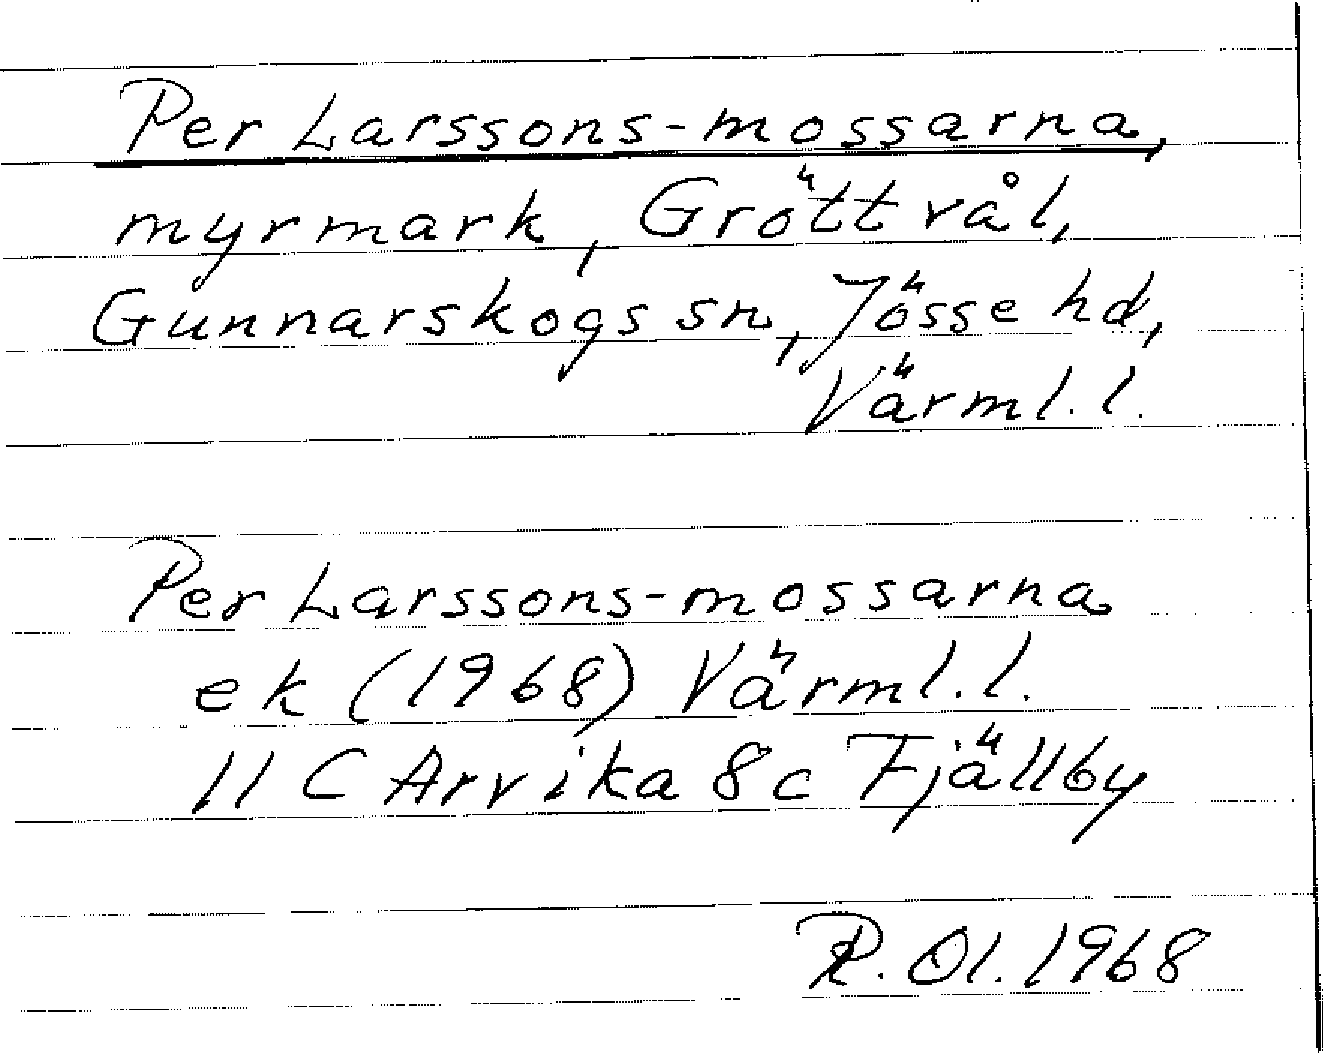 Per Larssons-mossarna,
myrmark, Gröttvål,
Gunnarskogs sn, Jösse hd,
Värml. l.
Per Larssons-mossarna
ek (1968) Värml. l.
11 C Arvika 8c Fjällby
R. Ol. 1968